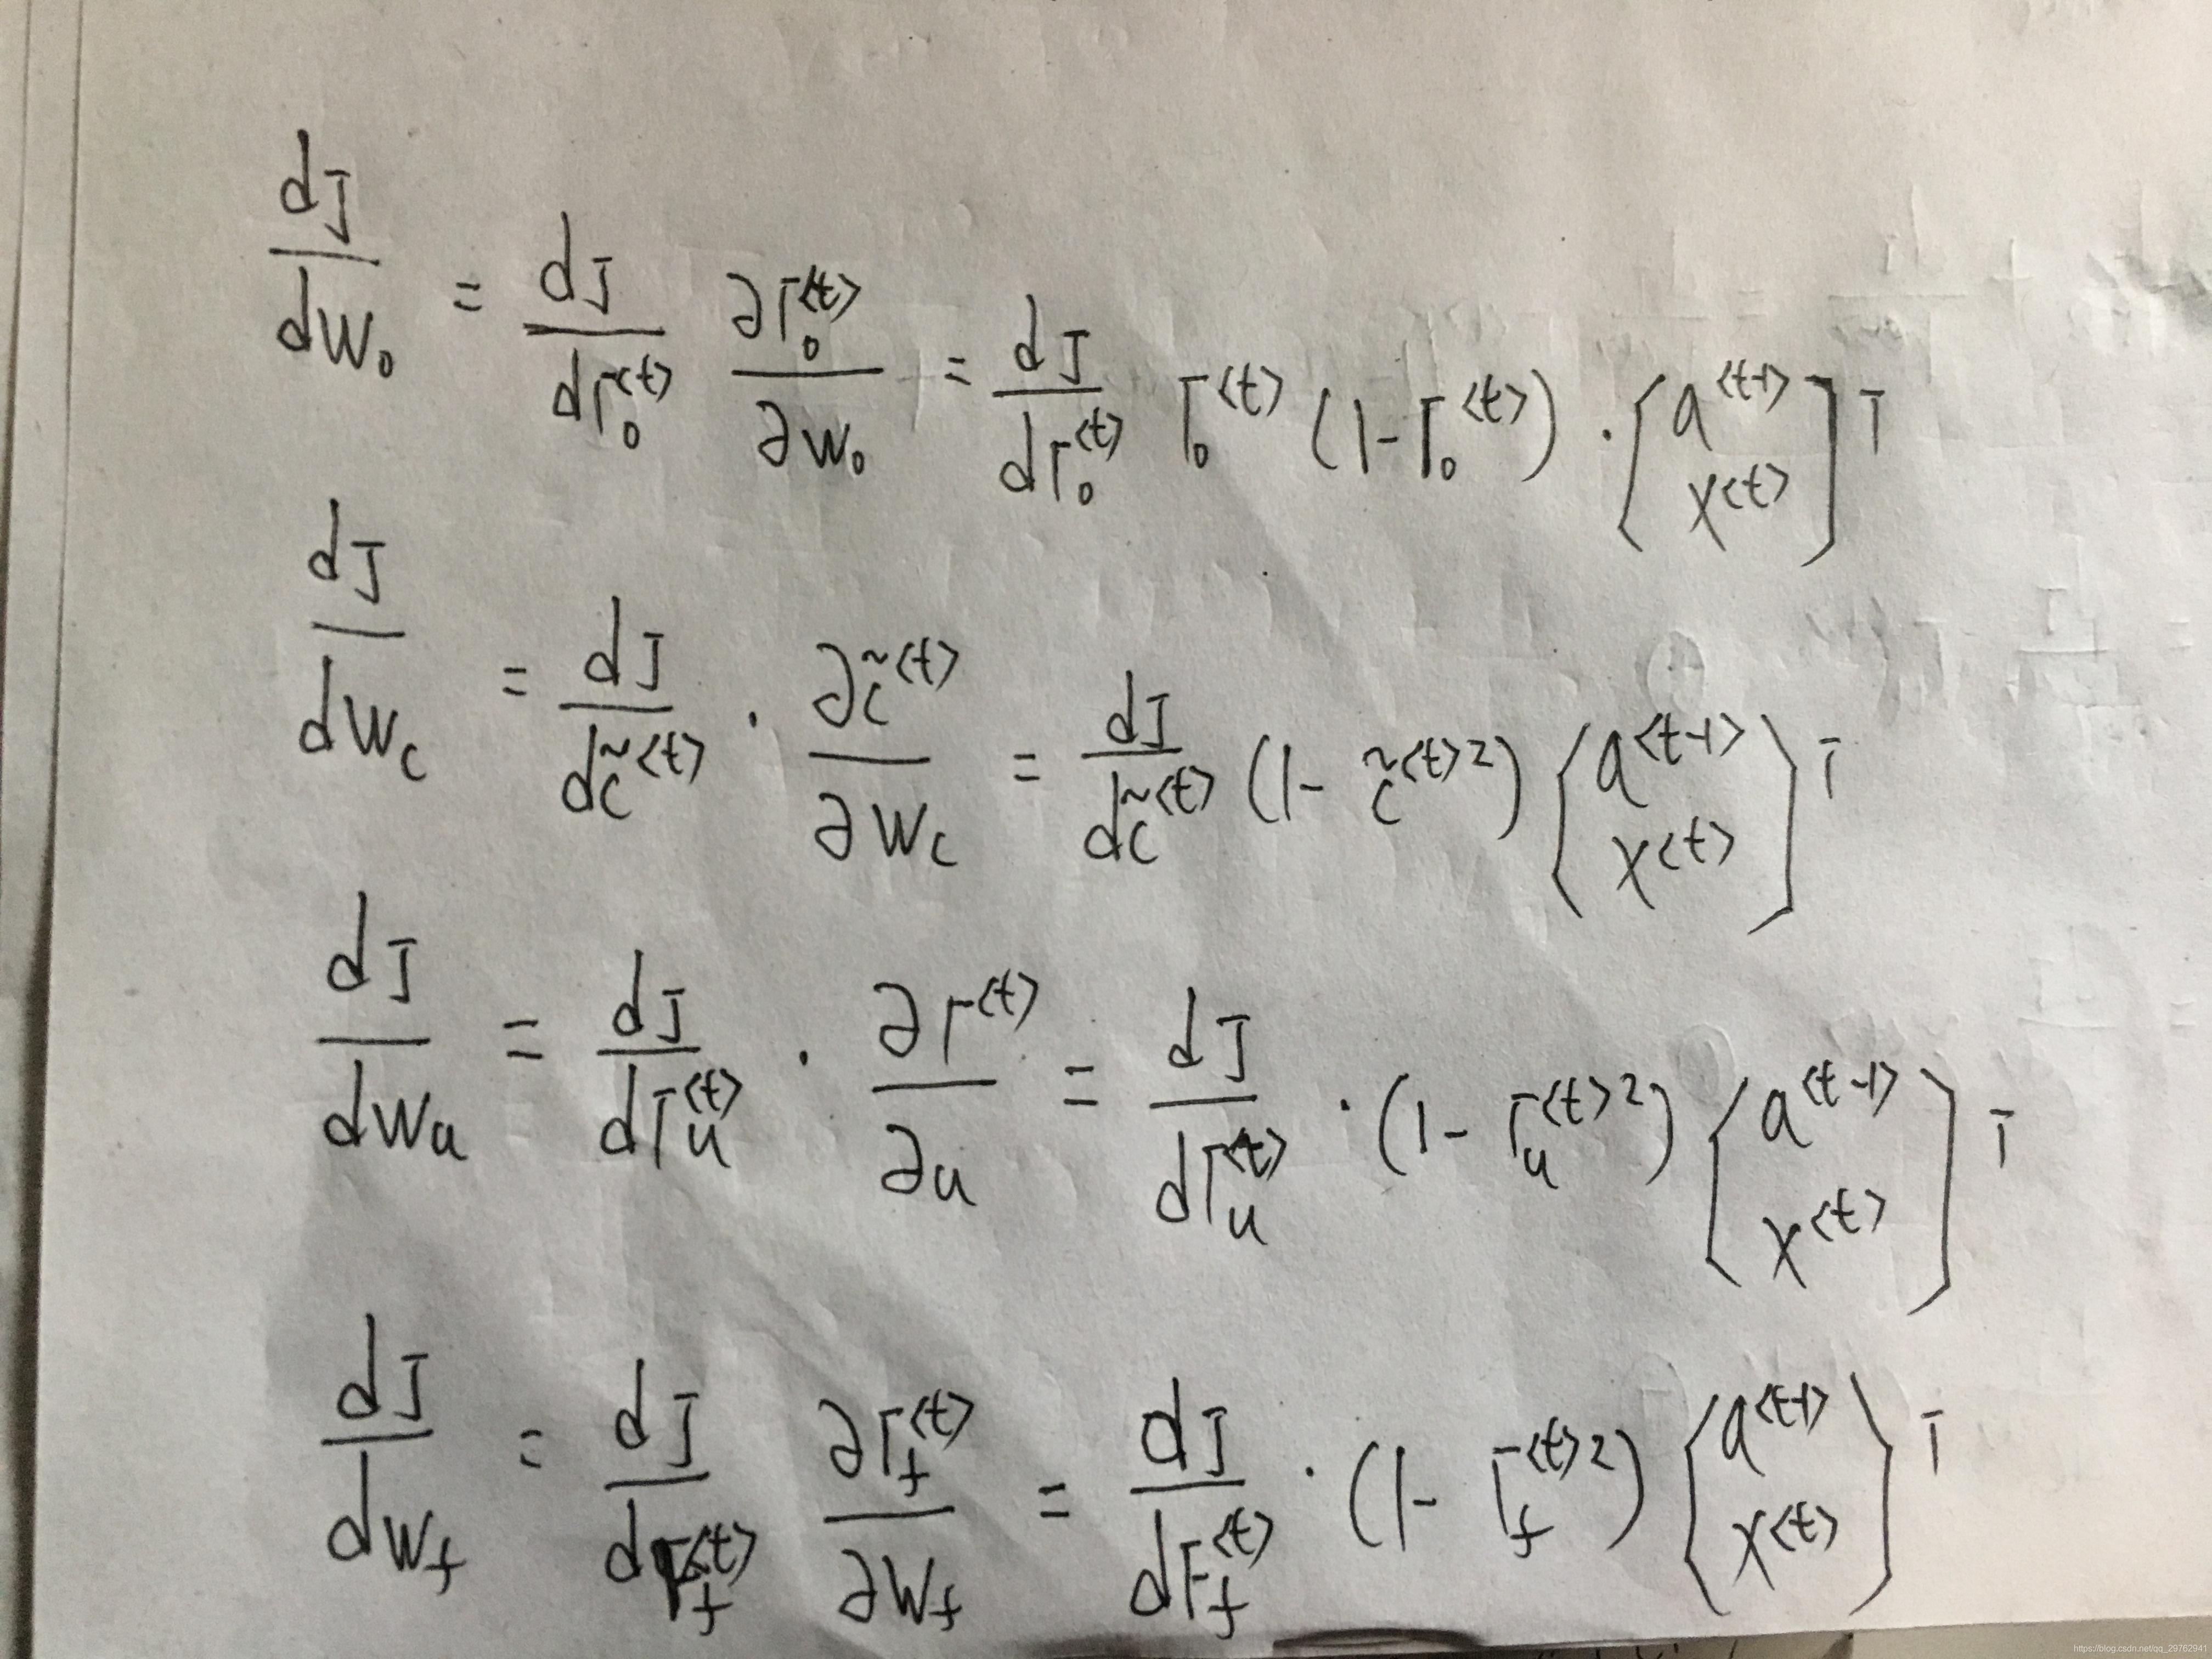 dJ/dW₀ = dJ/dΓ₀^<t> ∂Γ₀^<t>/∂W₀ = dJ/dΓ₀^<t> Γ₀^<t> (1-Γ₀^<t>) · [a^<t-1> x^<t>]^T
dJ/dW_c = dJ/dc̃^<t> · ∂c̃^<t>/∂W_c = dJ/dc̃^<t> (1- c̃^<t>2) [a^<t-1> x^<t>]^T
dJ/dW_u = dJ/dΓ_u^<t> · ∂Γ^<t>/∂u = dJ/dΓ_u^<t> · (1- Γ_u^<t>2) [a^<t-1> x^<t>]^T
dJ/dW_f = dJ/dΓ_f^<t> ∂Γ_f^<t>/∂W_f = dJ/dΓ_f^<t> · (1- Γ_f^<t>2) [a^<t-1> x^<t>]^T
https://blog.csdn.net/qq_29762941